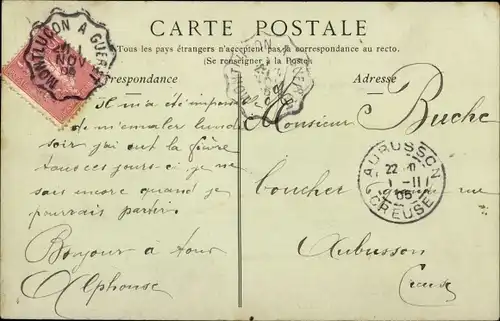 CARTE POSTALE
Tous les pays étrangers n'acceptent pas la correspondance au recto.
(Se renseigner à la Poste)
respondance
Adresse
MONTLUCON A GUERET
1
NOV
AUBUSSON
22
1 - 11
05
CREUSE
Il m'a été impos
de m'en aler lund
soir j'ai eut la fièvre
tous ces jours-ci je ne
sais encore quand je
pourrais partir.
Bonjour à tous
Alphonse
Monsieur Buche
boucher grande rue
Aubusson
Creuse